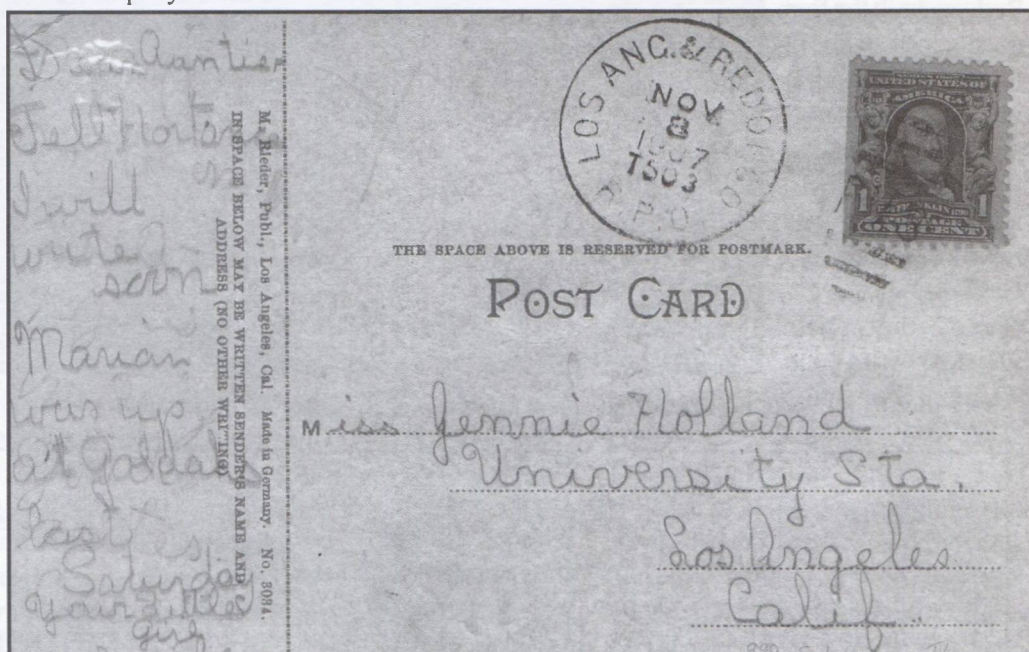 Dear Auntie
Tell Hortense
I will
write
soon
Marian
was up
at
Last
Saturday
Your little
girl
M. Rieder, Publ., Los Angeles, Cal. Made in Germany. No. 3084.
IN SPACE BELOW MAY BE WRITTEN SENDER'S NAME AND
ADDRESS (NO OTHER WRITING)
LOS ANG. & REDONDO
NOV
8
1907
T503
R.P.O.
UNITED STATES OF
AMERICA
FRANKLIN
1 POSTAGE 1
ONE CENT
THE SPACE ABOVE IS RESERVED FOR POSTMARK.
POST CARD
Miss Jennie Holland
University Sta.
Los Angeles
Calif.